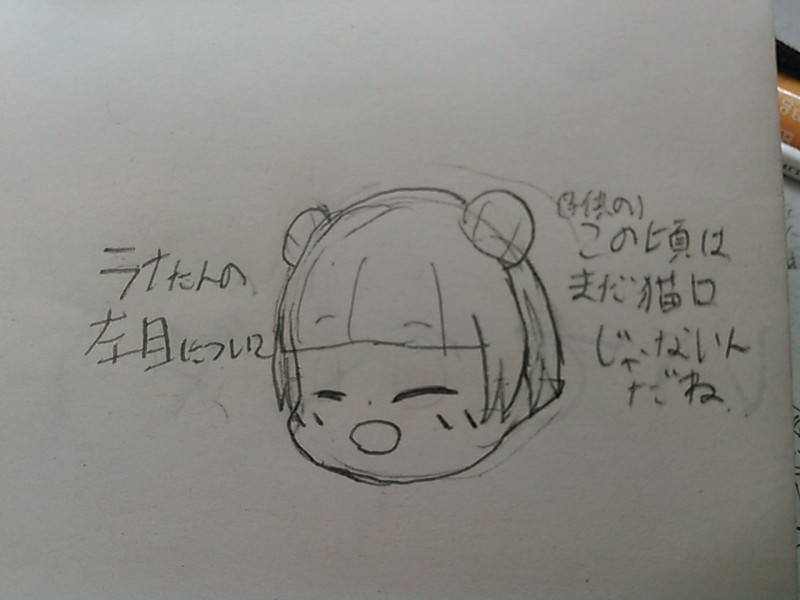 ラナたんの
左目について
(子供の)
この頃は
まだ猫口
じゃないん
だね。